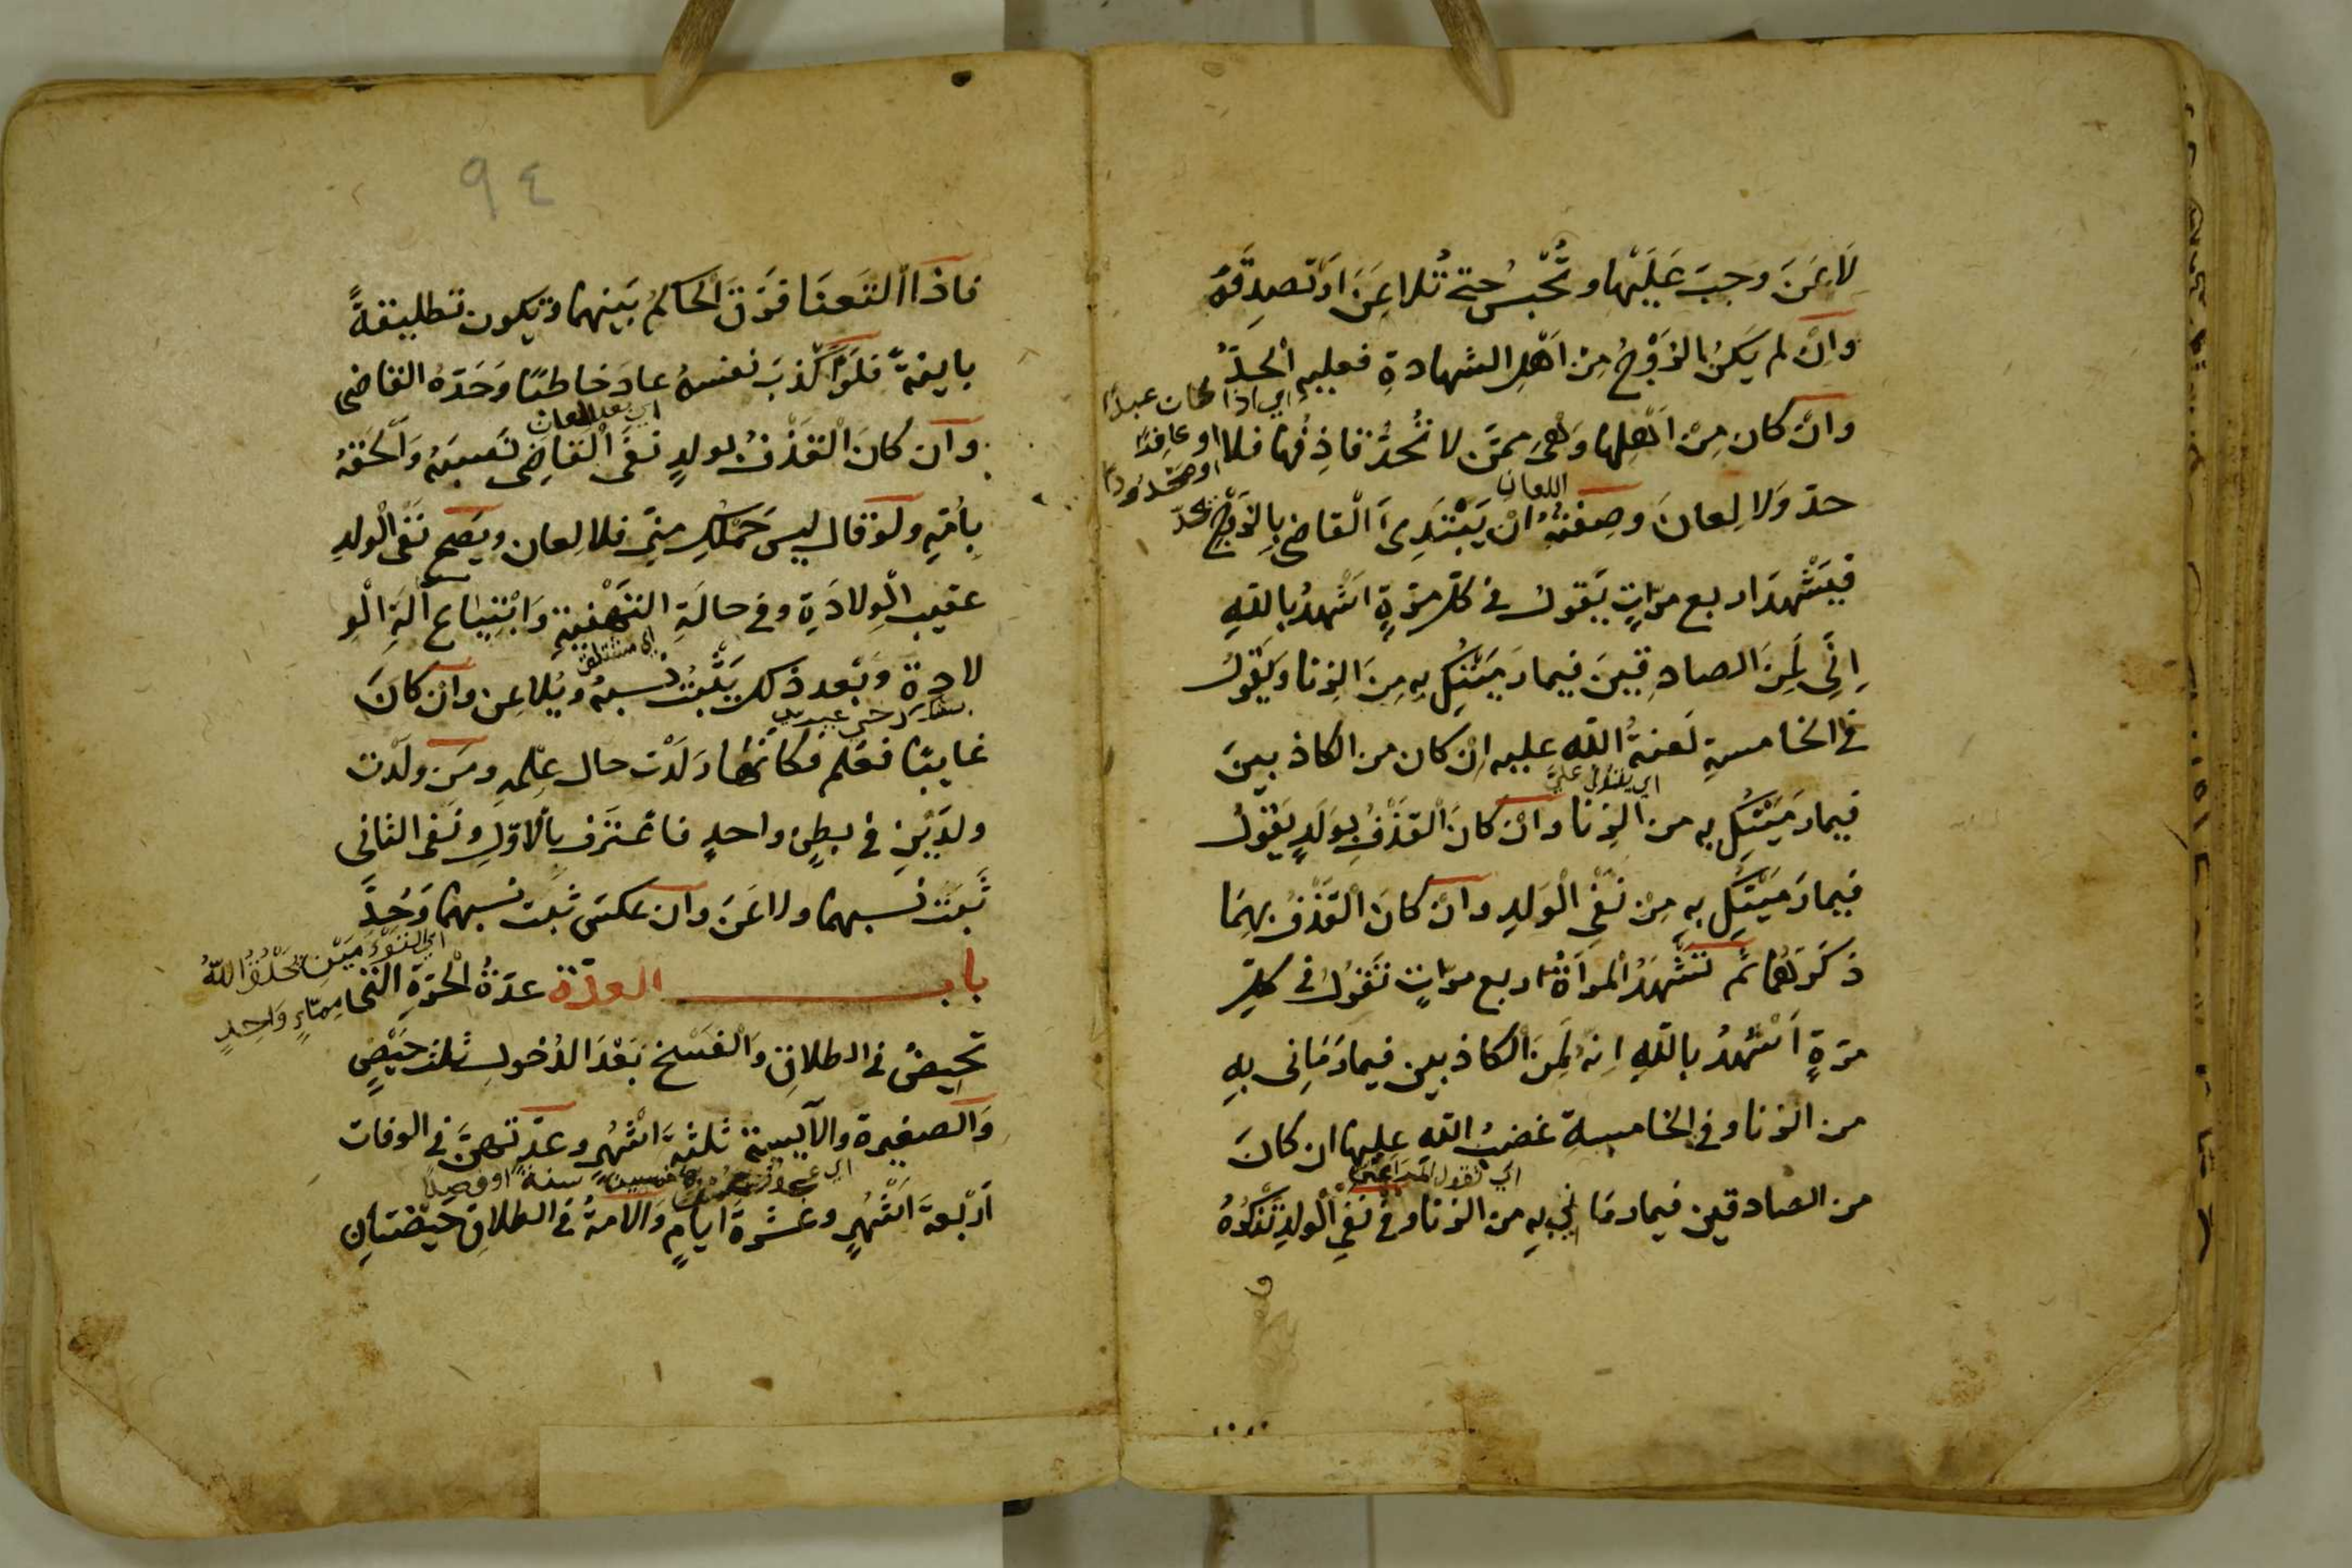 لَاعَنَ وجبَ عَلَيْها وتُحْبسُ حتى تُلاعِنَ او تصدِقَهُ
وانْ لم يَكنُ الزَوْجُ مِنْ اَهْلِ الشهادةِ فعليهِ الْحدُّ
اي اذا كان عبدًا
وانْ كان مِنْ اَهْلِها وَهْىَ مِمَّن لا تُحَدُّ قاذِفُها فلا
او كافرًا
او محدودا
حدّ وَلا لِعانَ وصِفتهُ انْ يَبْتَدِئَ الْقاضى بِالزَوْجِ
اللعان
فيَشْهدَ اربع مرّاتٍ يَقولُ فى كلّ مرّةٍ اَشْهدُ باللهِ
اِنِّى لَمِنَ الصادِقينَ فيما رَمَيْتُكِ بِهِ مِنَ الزنا وَيَقولُ
فى الخامسةِ لَعنةُ اللهِ عليه اِنْ كان من الكاذبينَ
اي يقول علىّ
فيما رَمَيْتُكِ به من الزِنَا وانْ كانَ الْقَذْفُ بِوَلَدٍ يَقولُ
فيما رَمَيْتُكِ بِهِ مِنْ نَفْىِ الْوَلِدِ وانْ كانَ الْقَذْفُ بهِمَا
ذكَرَهُما ثمّ تَشْهدُ المرْاَةُ اربع مرّاتٍ تَقولُ فى كلّ
مرّةٍ اَشْهدُ باللهِ اِنهُ لَمِنَ الْكاذبين فيما رَمَانِى بِهِ
من الزنا وفى الخامسةِ غضبُ اللهِ عليها ان كانَ
من الصادقين فيما رمَانِى بِهِ من الزنا وفى نَفْىِ الْولدِ تَذْكُرُهُ
٩٤
فاذا الْتَعنَا فَرَّقَ الْحاكمُ بَينهما وتكون تطليقةً
بايِنةً فلوْ اَكْذبَ نفسهُ عادَ خاطبًا وَحَدّهُ القاضى
اي بعد اللعان
وان كانَ الْقذْفُ بولدٍ نفَى الْقاضِى نَسَبَهُ وَاَلْحَقهُ
بِاُمّهِ ولَوْ قال ليسَ حَمْلُكِ مِنّى فلا لِعان ويَصحّ نَفْىُ الْولدِ
عقيب الْوِلادَةِ وفى حالَةِ التَهْنئةِ وَابْتِيَاعِ آلَةِ الْوِ
لادةِ وَبَعد ذلك يَثْبُتُ نسبهُ ويُلاعِن وانْ كانَ
غايبًا فعَلم فكانّها وَلَدَتْ حال عِلْمهِ ومَن ولَدت
ولدَيْنِ فى بطنٍ واحدٍ فاعْتَرَف بالْاوّلِ ونَفى الثانى
ثَبتَ نسبهما ولاعَنَ وان عكسَ ثبت نسبهما وَحُدَّ
اي التَوْءَمَيْنِ
باب العدّة عدّةُ الْحرّةِ التى
مِن مَاءٍ وَاحِدٍ
تَحيضُ فى الطلاقِ وَالْفسْخ بَعْدَ الدُخولِ ثلث حيَضٍ
وَالصغيرة والآيسة ثلثة اَشْهُرٍ وعدّتهنّ فى الوفات
اَرْبعة اَشْهُرٍ وعَشَرة ايّامٍ وَالامةُ فى الطلاق حَيْضتانِ